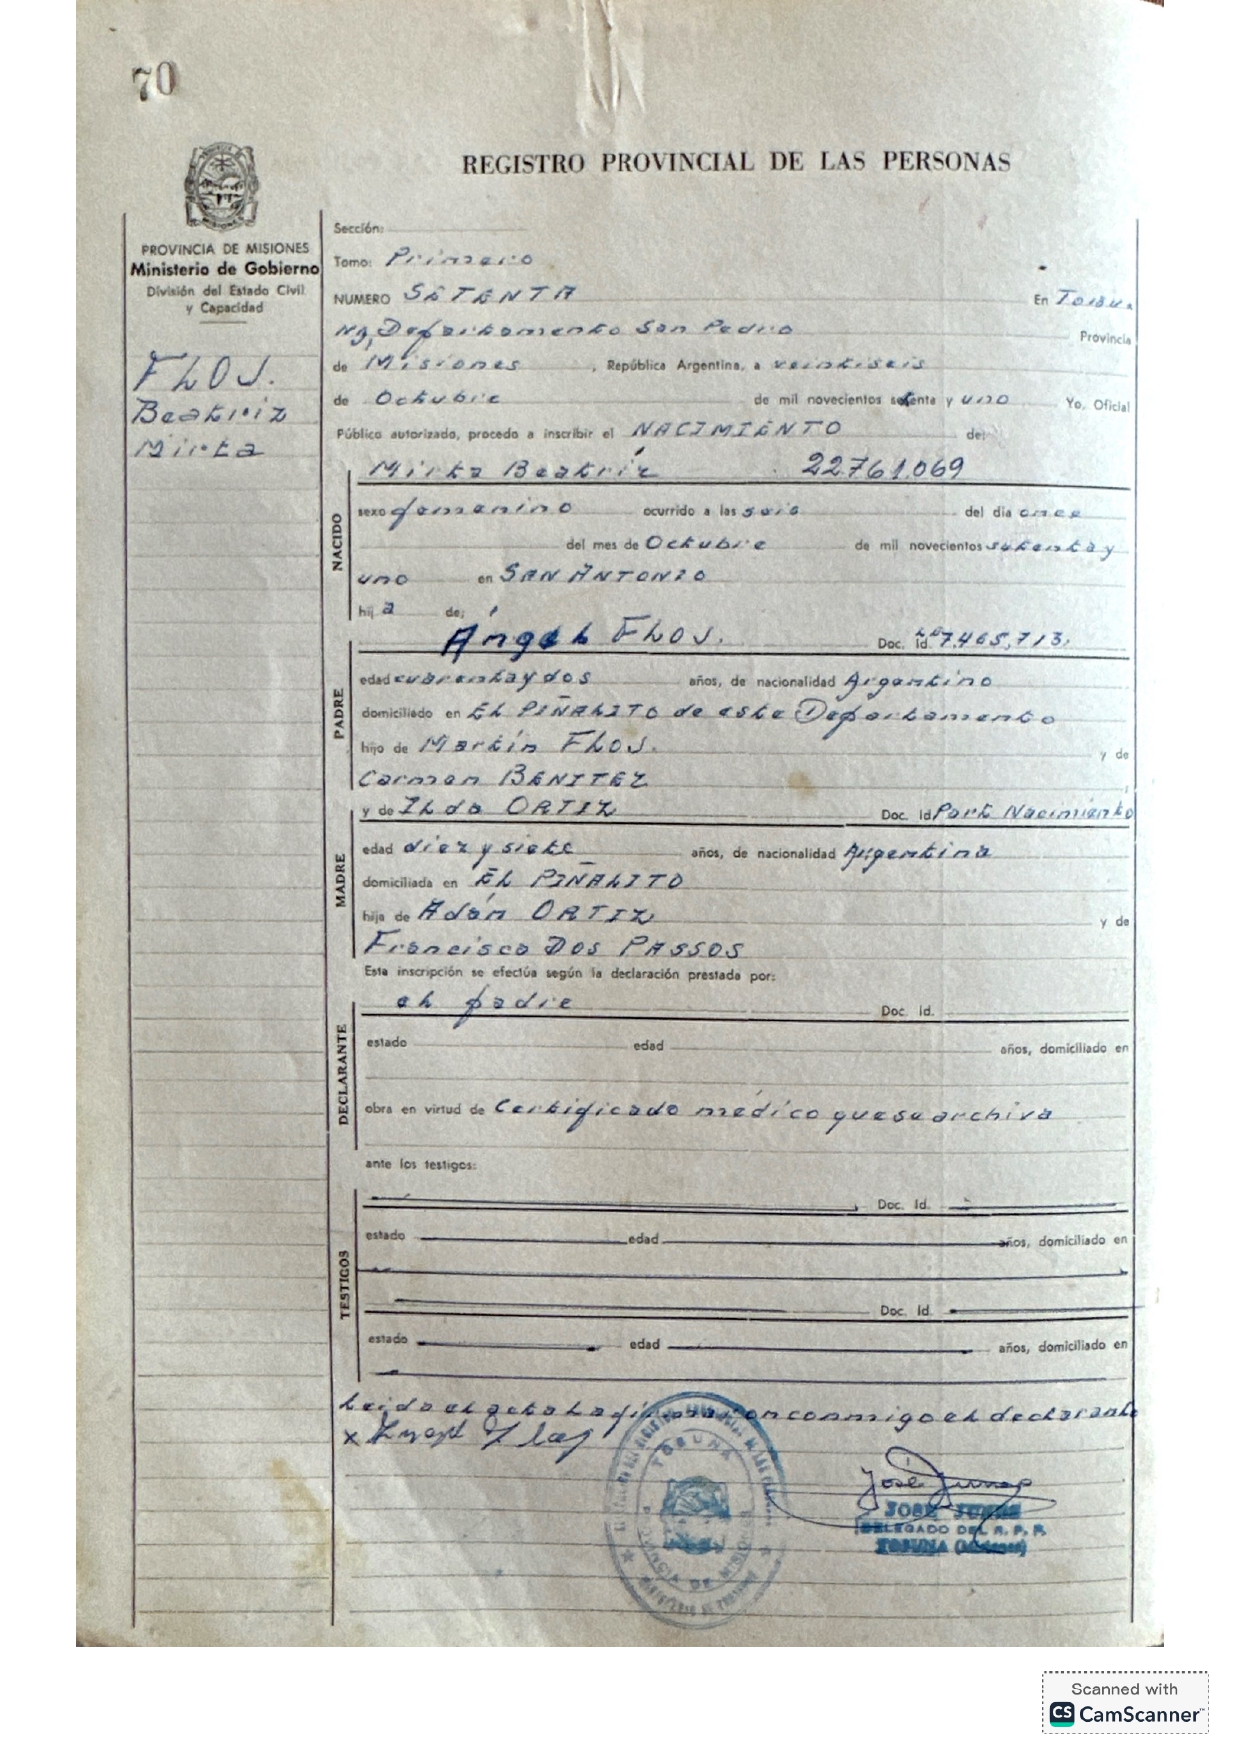 70
REGISTRO PROVINCIAL DE LAS PERSONAS
PROVINCIA DE MISIONES
Ministerio de Gobierno
División del Estado Civil
y Capacidad
FLOS.
Beatriz
Mirta
Sección:
Tomo: Primero
NUMERO SETENTA En Tobu-
na, Departamento San Pedro Provincia
de Misiones, República Argentina, a veintiseis
de Octubre de mil novecientos setenta y uno Yo, Oficial
Público autorizado, procedo a inscribir el NACIMIENTO de:
Mirta Beatriz 22.761.069
NACIDO
sexo femenino ocurrido a las seis del día once
del mes de Octubre de mil novecientos setenta y
uno en SAN ANTONIO
hij a de;
Ángel FLOS. Doc. Id. 7.465.713.
PADRE
edad cuarenta y dos años, de nacionalidad Argentino
domiciliado en EL PIÑALITO de este Departamento
hijo de Martín FLOS. y de
Carmen BENITEZ
y de Ilda ORTIZ Doc. Id Part Nacimiento
MADRE
edad diez y siete años, de nacionalidad Argentina
domiciliada en EL PIÑALITO
hija de Adán ORTIZ y de
Francisca DOS PASSOS
Esta inscripción se efectúa según la declaración prestada por:
el padre Doc. Id.
DECLARANTE
estado edad años, domiciliado en
obra en virtud de Certificado médico que se archiva
ante los testigos:
Doc. Id.
TESTIGOS
estado edad años, domiciliado en
Doc. Id.
estado edad años, domiciliado en
Leida el acta la firma con conmigo el declarante
x Angel Flos
TOBUNA
PROVINCIA DE MISIONES
MINISTERIO DE GOBIERNO
José Junes
JOSE JUNES
DELEGADO DEL R. P. P.
TOBUNA (Misiones)
Scanned with
CS CamScanner